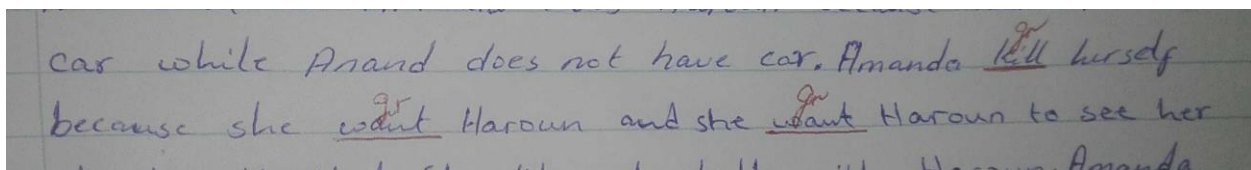 car while Anand does not have car. Amanda kill herself
gr
because she want Haroun and she want Haroun to see her
gr gr
Amanda